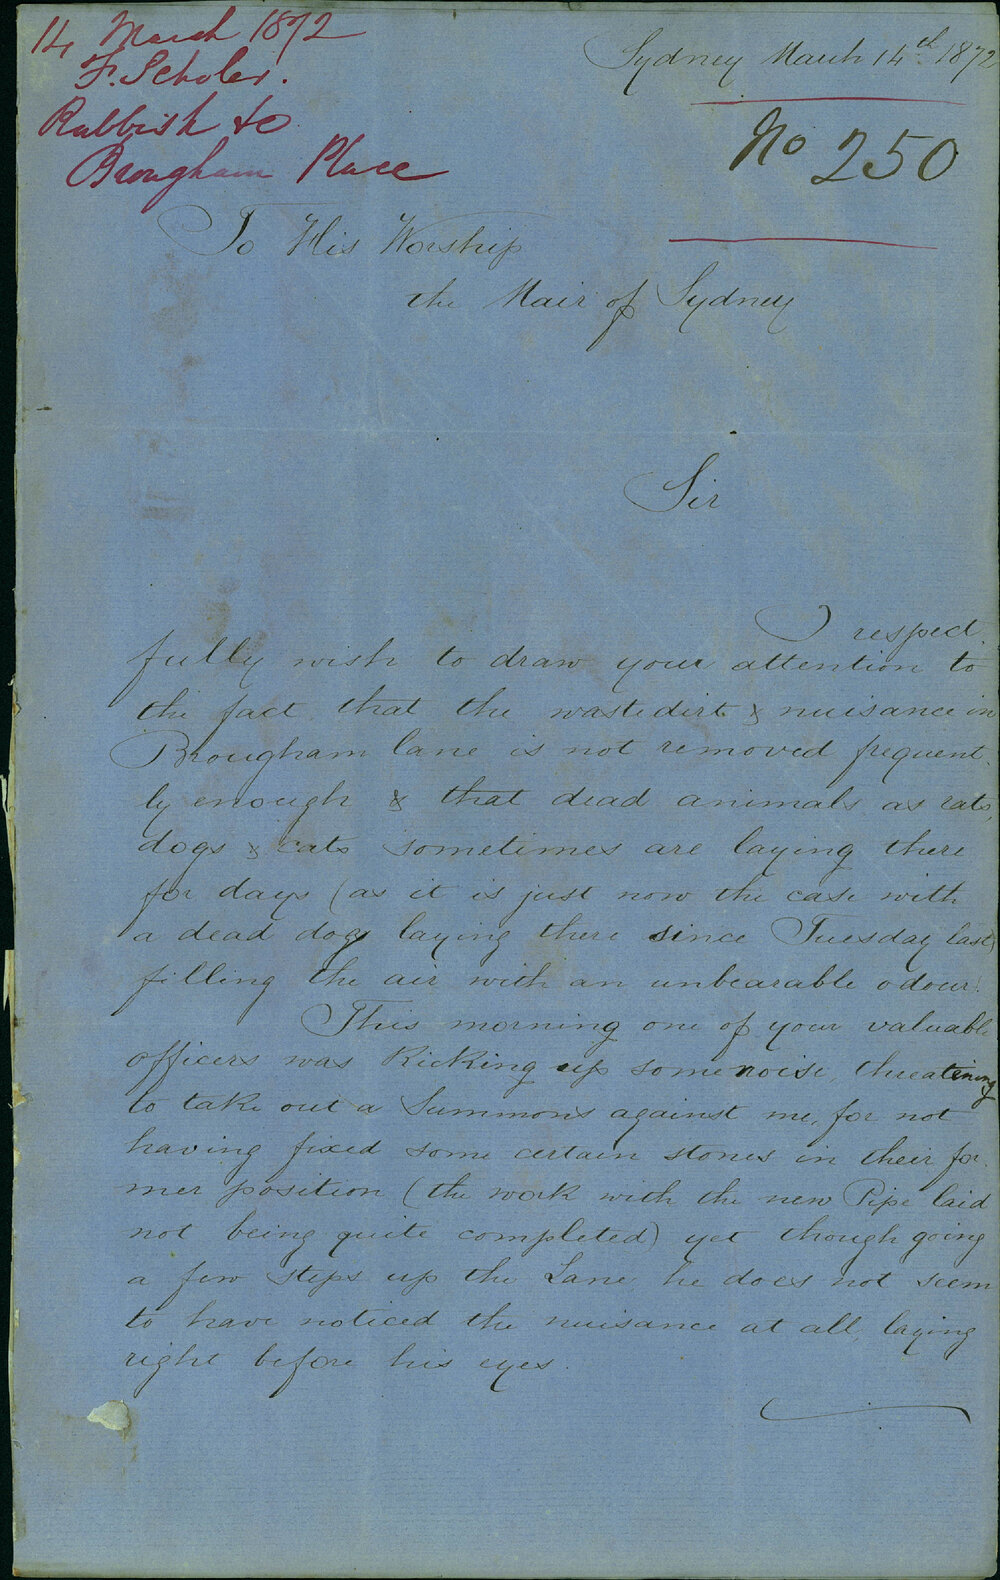 14 March 1872
F. Scholer.
Rubbish to
Brougham Place
Sydney March 14th 1872
No 250
To His Worship
the Mair of Sydney
Sir
I respect
fully wish to draw your attention to
the fact that the waste dirt & nuisance in
Brougham lane is not removed frequent
ly enough & that dead animals as rats,
dogs & cats sometimes are laying there
for days (as it is just now the case with
a dead dog laying there since Tuesday last)
filling the air with an unbearable odour.
This morning one of your valuable
officers was Kicking up some noise, threatening
to take out a Summons against me, for not
having fixed some certain stones in their for
mer position (the work with the new Pipe laid
not being quite completed) yet though going
a few steps up the Lane he does not seem
to have noticed the nuisance at all, laying
right before his eyes.